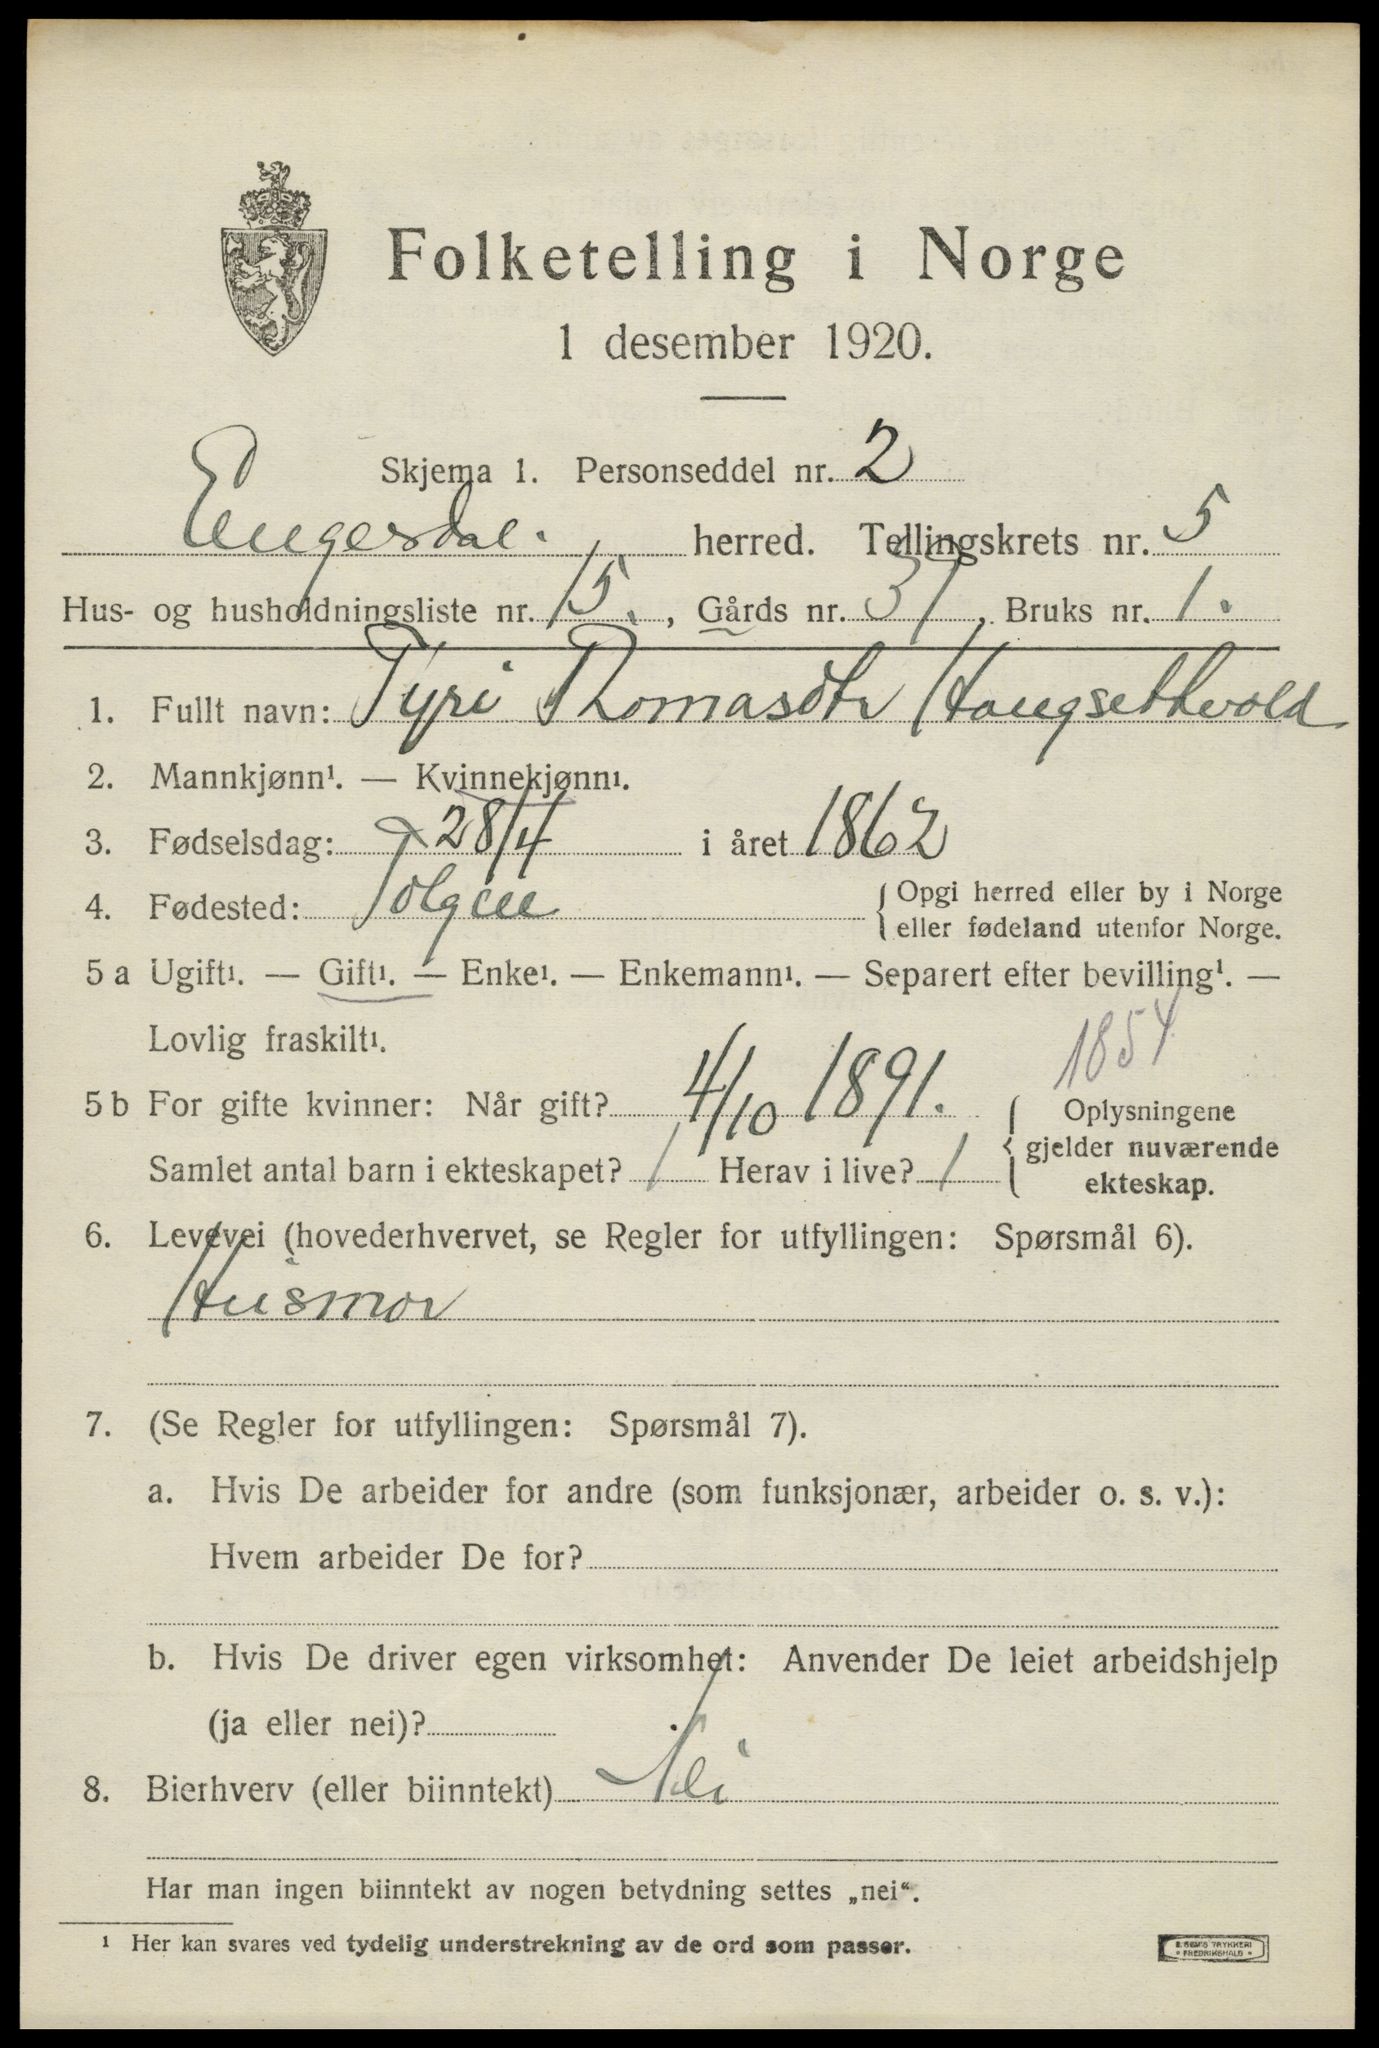 Folketelling i Norge
1 desember 1920.
Skjema 1. Personseddel nr. 2
Engerdal. herred. Tellingskrets nr. 5
Hus- og husholdningsliste nr. 15. , Gårds nr. 37 , Bruks nr. 1.
1. Fullt navn: Tyri Thomasdtr Haugsethvold
2. Mannkjønn¹. — Kvinnekjønn¹.
3. Fødselsdag: 28/4 i året 1862
4. Fødested: Tolgen { Opgi herred eller by i Norge
eller fødeland utenfor Norge.
5 a Ugift¹. — Gift¹. — Enke¹. — Enkemann¹. — Separert efter bevilling¹. —
Lovlig fraskilt¹.
1854
5 b For gifte kvinner: Når gift? 4/10 1891. { Oplysningene
gjelder nuværende
Samlet antal barn i ekteskapet? 1 Herav i live? 1
ekteskap.
6. Levevei (hovederhvervet, se Regler for utfyllingen: Spørsmål 6).
Husmor
7. (Se Regler for utfyllingen: Spørsmål 7).
a. Hvis De arbeider for andre (som funksjonær, arbeider o. s. v.):
Hvem arbeider De for?
b. Hvis De driver egen virksomhet: Anvender De leiet arbeidshjelp
(ja eller nei)?
8. Bierhverv (eller biinntekt) Nei
Har man ingen biinntekt av nogen betydning settes „nei“.
¹ Her kan svares ved tydelig understrekning av de ord som passer.
E. SEM'S TRYKKERI
• FREDRIKSHALD •